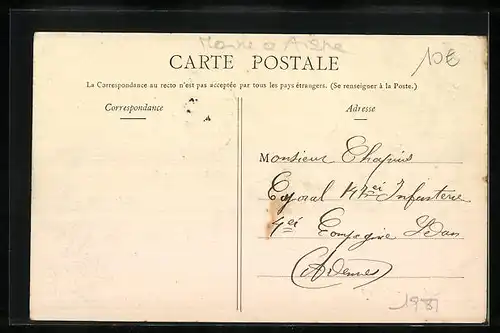 Marne a Aisne
10€
CARTE POSTALE
La Correspondance au recto n'est pas acceptée par tous les pays étrangers. (Se renseigner à la Poste.)
Correspondance
Adresse
Monsieur Chapuis
Caporal 147ei Infanterie
4ei Compagnie Sedan
(Ardennes)